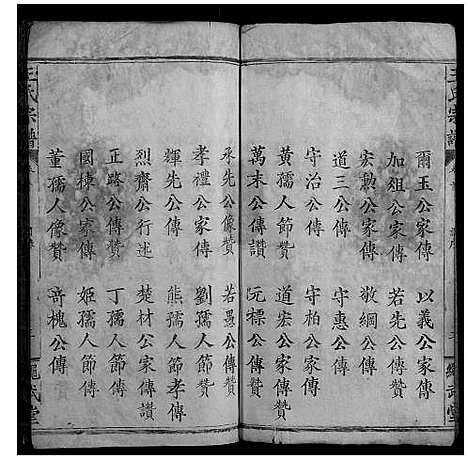 王氏宗譜
爾玉公家傳 以義公家傳
加俎公家傳 若先公傳
宏勲公家傳 敬綱公傳
道三公傳 守惠公傳
守治公傳 守柏公家傳
黄孺人節贊 道宏公家傳
萬末公傳讃 元標公傳贊
承先公像贊 若愚公傳
孝禮公家傳 劉孺人節贊
輝先公傳 熊孺人節孝傳
烈齋公行述 楚材公家傳讃
正路公傳 丁孺人節傳
國棟公傳 姬孺人節傳
董孺人像贊 奇槐公傳
王氏宗譜
繩武堂